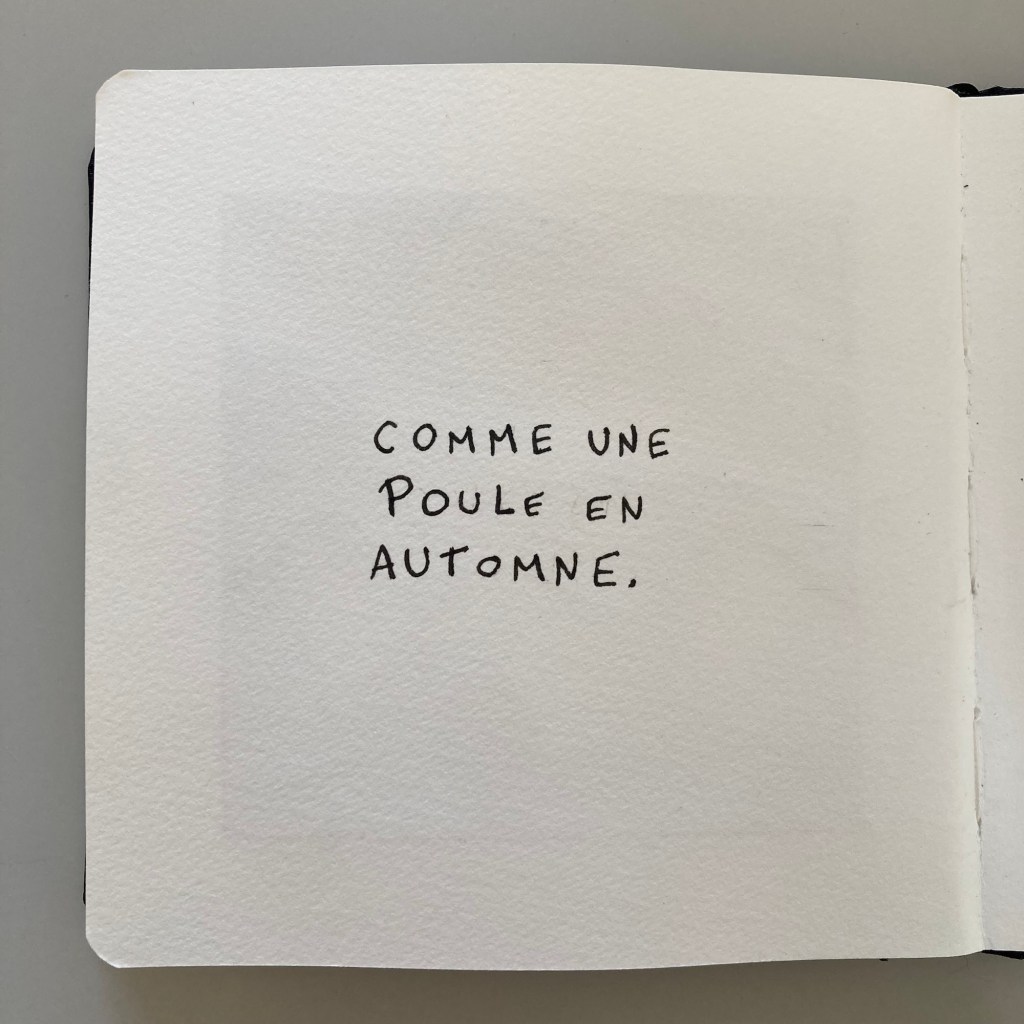 COMME UNE
POULE EN
AUTOMNE.